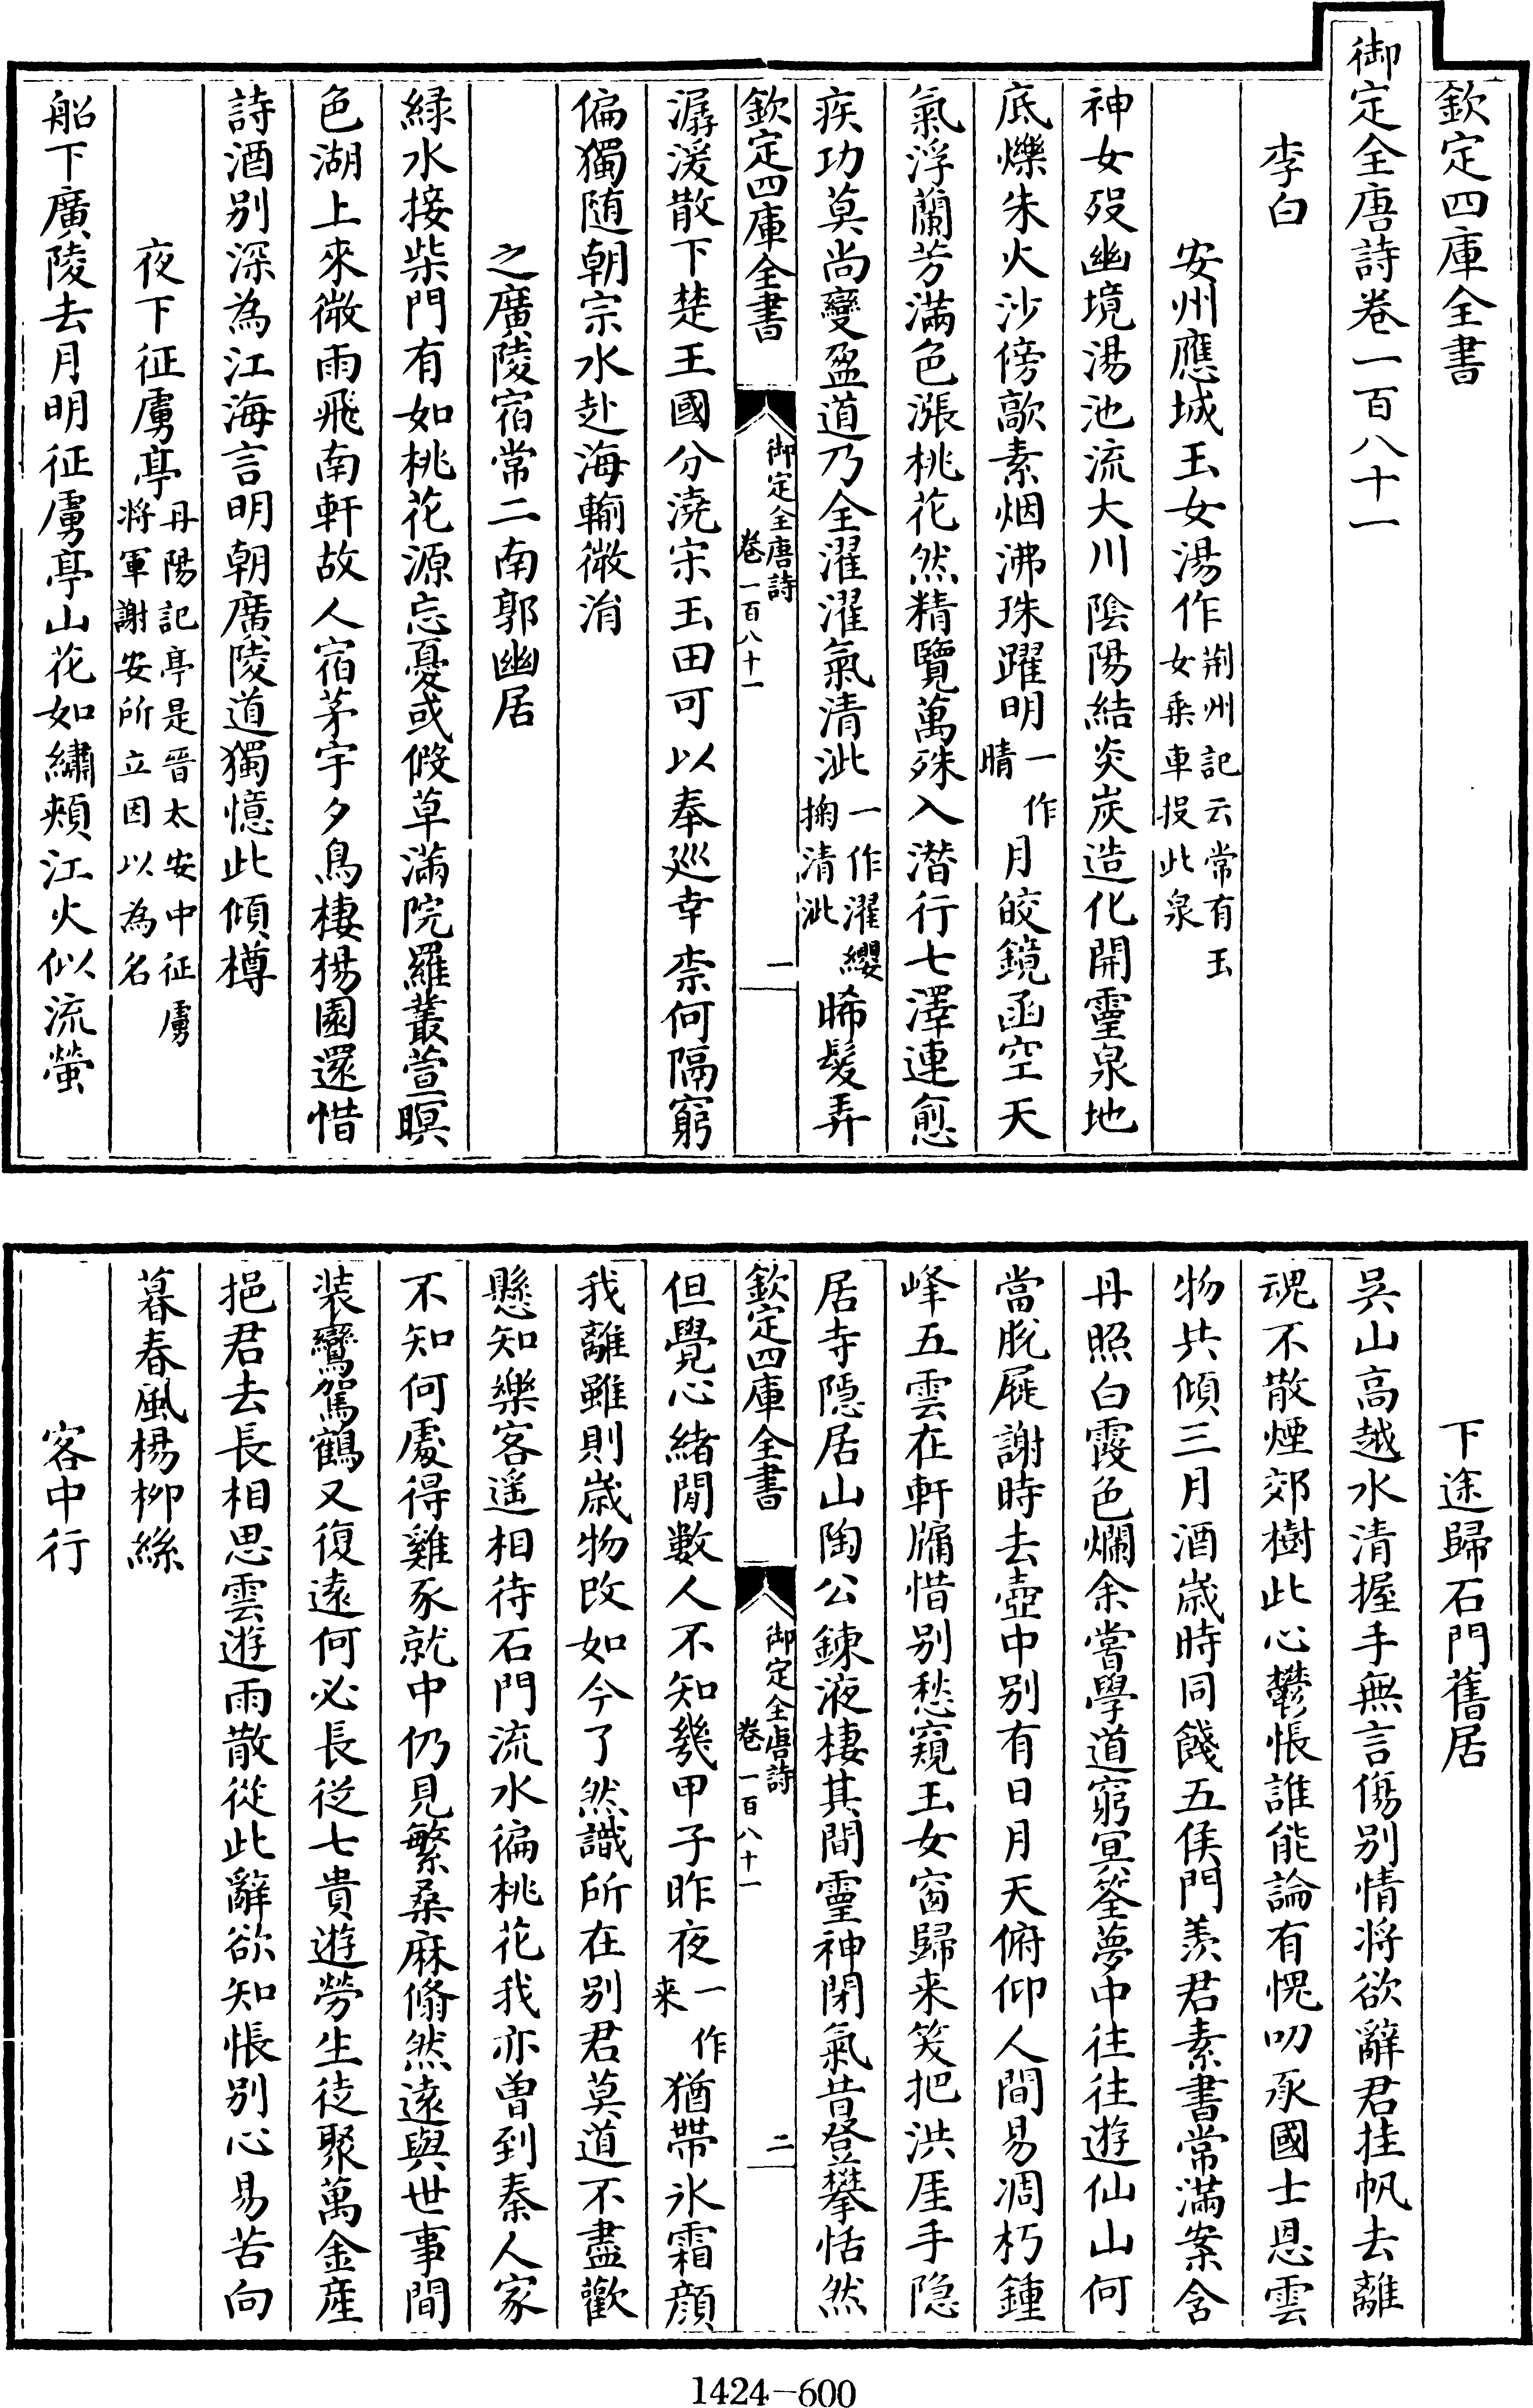 欽定四庫全書
御定全唐詩卷一百八十一
李白
安州應城玉女湯作荆州記云常有玉女乘車投此泉
神女歿幽境湯池流大川陰陽結炎炭造化開靈泉地
底爍朱火沙傍歊素烟沸珠躍明一作晴月皎鏡函空天
氣浮蘭芳滿色漲桃花然精覽萬殊入潛行七澤連愈
疾功莫尚變盈道乃全濯濯氣清泚一作濯纓掬清泚晞髮弄
欽定四庫全書
御定全唐詩
卷一百八十一
一
潺湲散下楚王國分澆宋玉田可以奉巡幸柰何隔窮
偏獨随朝宗水赴海輸微涓
之廣陵宿常二南郭幽居
緑水接柴門有如桃花源忘憂或假草滿院羅叢萱暝
色湖上來微雨飛南軒故人宿茅宇夕鳥棲楊園還惜
詩酒别深為江海言明朝廣陵道獨憶此傾樽
夜下征虜亭丹陽記亭是晉太安中征虜将軍謝安所立因以為名
船下廣陵去月明征虜亭山花如繡頰江火似流螢
下途歸石門舊居
吳山高越水清握手無言傷别情将欲辭君挂帆去離
魂不散煙郊樹此心鬱悵誰能論有愧叨承國士恩雲
物共傾三月酒歲時同餞五侯門羨君素書常滿案含
丹照白霞色爛余嘗學道窮冥筌夢中往往遊仙山何
當脫屣謝時去壺中别有日月天俯仰人間易凋朽鍾
峰五雲在軒牖惜别愁窺玉女窗歸来笑把洪厓手隐
居寺隱居山陶公鍊液棲其間靈神閉氣昔登攀恬然
欽定四庫全書
御定全唐詩
卷一百八十一
二
但覺心緒閒數人不知幾甲子昨夜一作来猶帶氷霜顔
我離雖則歲物改如今了然識所在别君莫道不盡歡
懸知樂客遥相待石門流水徧桃花我亦曽到秦人家
不知何處得雞豕就中仍見繁桑麻翛然遠與世事間
装鸞駕鶴又復遠何必長從七貴遊勞生徒聚萬金産
挹君去長相思雲遊雨散從此辭欲知悵别心易苦向
暮春風楊柳絲
客中行
1424—600